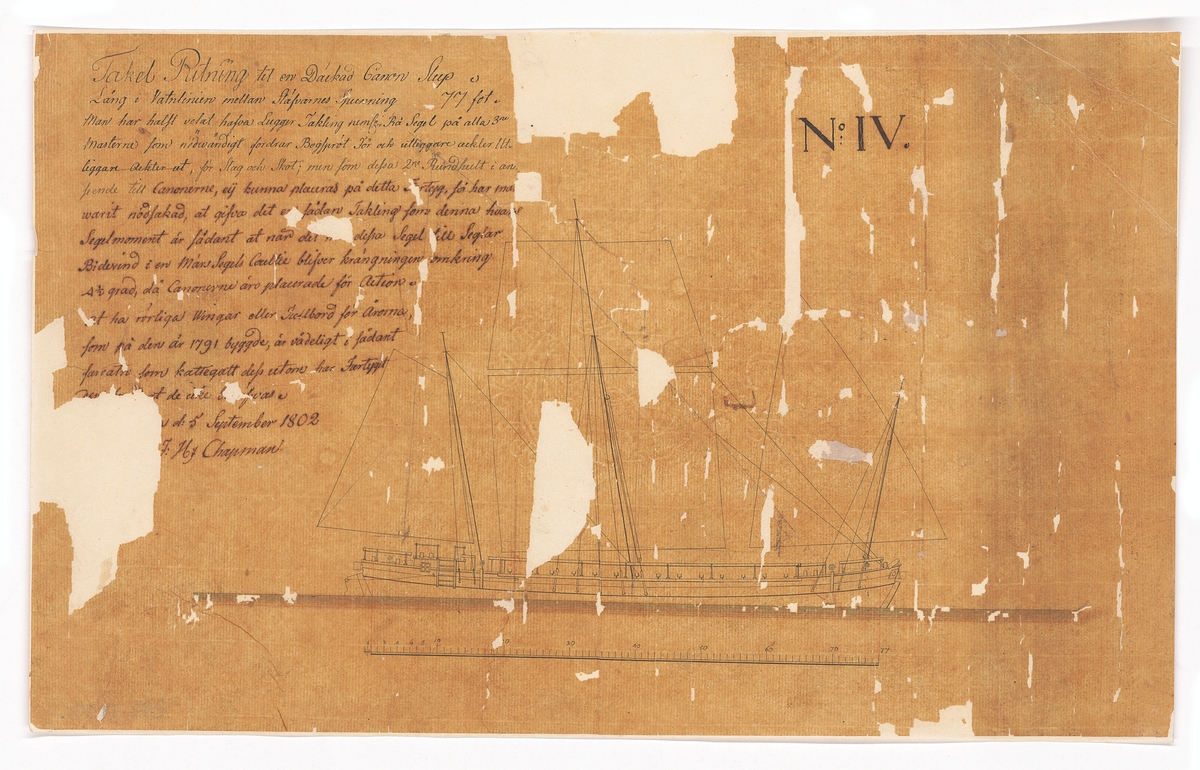 Takel Ritning til en Däckad Canon Slup
Läng i Vatnlinien mellan Stäfvarnes Spuerning 77 fot.
Man har hälst velat hafva Lugger Takling Rå Segel på alla 3ne
Masterne som nödwändigt fordrar Bogspröt För och uttingare ackter
liggare ackter ut, för Stag och Skot; men som dessa 2ne Rundhult i an
seende till Canonerne, eij kunna placeras på detta fartyg, så har ma
warit nödsakad, at gifva det e sådan Takling som denna hvars
Segelmoment är sådant at när det dessa Segel till Seglar
Bidevind i en Märs Segels Coultie blifver krängningen omkring
4½ grad, då Canonerne äro placerade för Action.
at ha rörliga Wingar eller för Årorna,
som på den år 1791 byggde, är vådeligt i sådant
farvatn som Kattegatt dess utom har Fartyget
de icke
d: 5 September 1802
F: H af Chapman
No: IV.
10 10 20 30 40 60 70 77